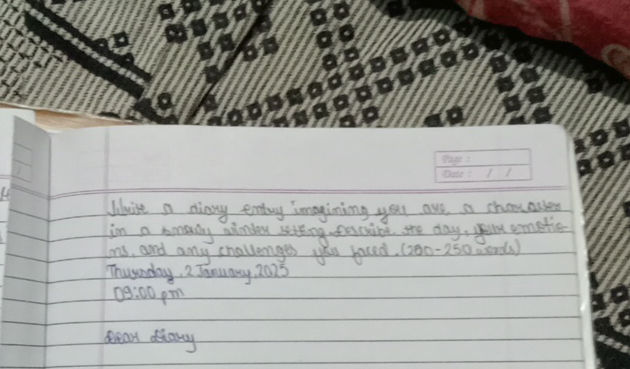 Page :
Date : / /
Write a diary entry imagining you are a character
in a snowy winter setting. Describe the day, your emotio-
ns, and any challenges you faced. (200-250 words)
Thursday, 2 January, 2025
09:00 pm
Dear Diary